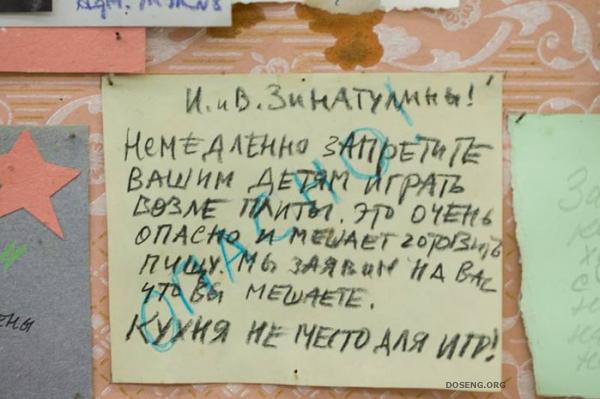 Адм. МЖК№8
И. и В. ЗИНАТУЛИНЫ!
НЕМЕДЛЕННО ЗАПРЕТИТЕ
ВАШИМ ДЕТЯМ ИГРАТЬ
ВОЗЛЕ ПЛИТЫ. ЭТО ОЧЕНЬ
ОПАСНО И МЕШАЕТ ГОТОВИТЬ
ПИЩУ. МЫ ЗАЯВИМ НА ВАС
ЧТО ВЫ МЕШАЕТЕ.
КУХНЯ НЕ МЕСТО ДЛЯ ИГР!
ОПАСНО!
DOSENG.ORG